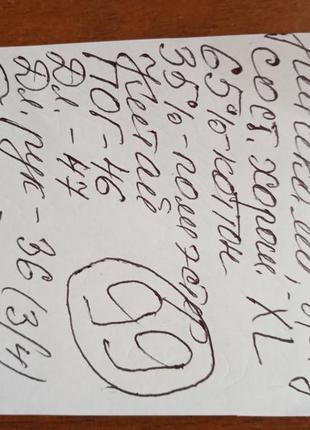 сост. хорош. - XL
65% - коттн
35% - полиэстр
Китай
ПОГ - 46
Дл. - 47
Дл. рук - 36 (3/4)
69